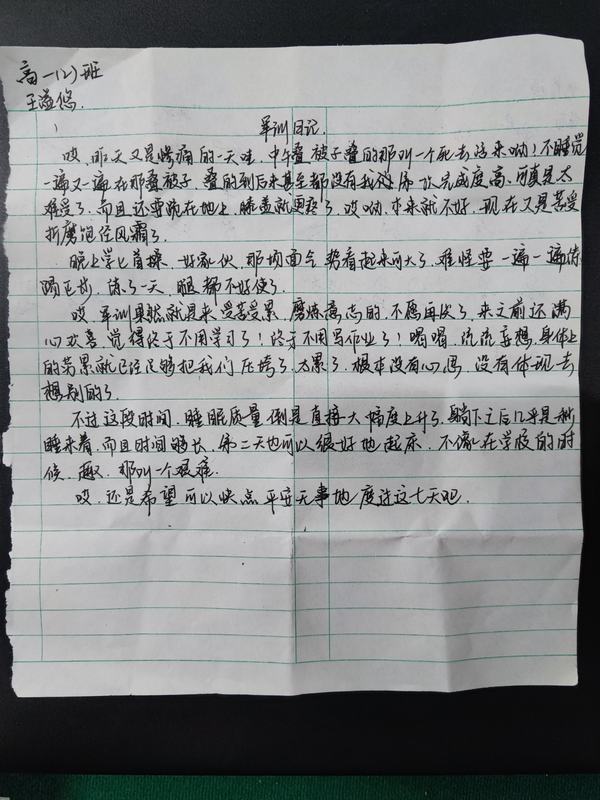 高一(2)班
王溢悠.
军训日记.
哎,昨天又是惨痛的一天哇,中午叠被子叠的那叫一个死去活来哟!不睡觉
一遍又一遍在那叠被子,叠的到后来甚至都没有我第一次完成度高,可真是太
难受了,而且还要跪在地上,膝盖就更疼了,哎哟,本来就不好,现在又是苦受
折磨饱经风霜了。
晚上学匕首操,好家伙,那场面气势看起来可大了,难怪要一遍一遍练
踢正步,练了一天,腿都不好使了。
哎,军训果然就是来受苦受累,磨炼意志的,不愿再伏了,来之前还满
心欢喜,觉得终于不用学习了!终于不用写作业了!喝喝,流流妄想,身体上
的劳累就已经足够把我们压垮了,太累了,根本没有心思,没有体现去
想别的了。
不过这段时间,睡眠质量倒是直接大幅度上升了,躺下之后几乎是秒
睡来着,而且时间够长,第二天也可以很好地起床,不像在学校的时
候,起,那叫一个艰难.
哎,还是希望可以快点平安无事地度过这七天吧.